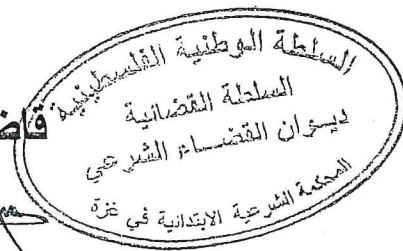 السلطة الوطنية الفلسطينية
السلطة القضائية
ديوان القضاء الشرعي
المحكمة الشرعية الابتدائية في غزة